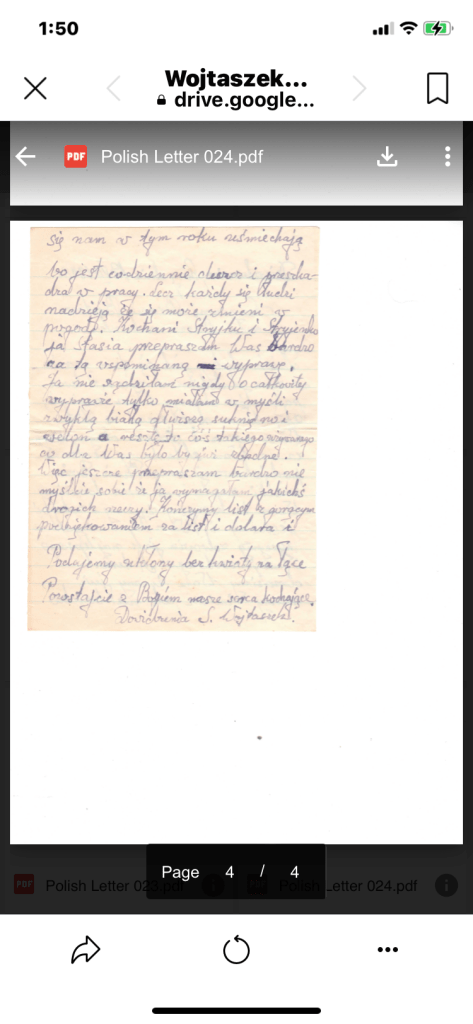 1:50
Wojtaszek...
drive.google...
PDF Polish Letter 024.pdf
się nam w tym roku uśmiechają
bo jest codziennie deszcz i przeszka-
dza w pracy. Lecz każdy się łudzi
nadzieją że się może zmieni w
pogodę. Kochani Stryjku i Stryjenko
ja Stasia przepraszam Was bardzo
za tą wspomnianą wyprawę.
Ja nie myślałam nigdy o całkowity
wyprawie tylko miałam w myśli
zwykłą białą suknię no i
welon a resztę to coś takiego
co dla Was było by już zbędne.
Więc jeszcze przepraszam bardzo nie
myślcie sobie że ja wymagałam jakichś
drogich rzeczy. Kończymy list z gorącym
podziękowaniem za list i dolara i
Podujemy ukłony bez kwiaty na łące
Pozostajcie z Bogiem nasze serca kochające.
Dowidzenia S. Wojtaszek.
PDF Polish Letter 023.pdf
PDF Polish Letter 024.pdf
Page 4 / 4